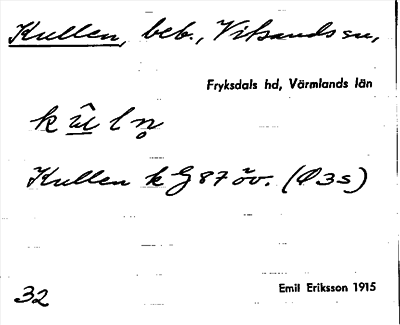 Kullen, beb., Vitsands sn,
Fryksdals hd, Värmlands län
k û l n̥
Kullen k G 87 öv. (Ø3s)
32
Emil Eriksson 1915